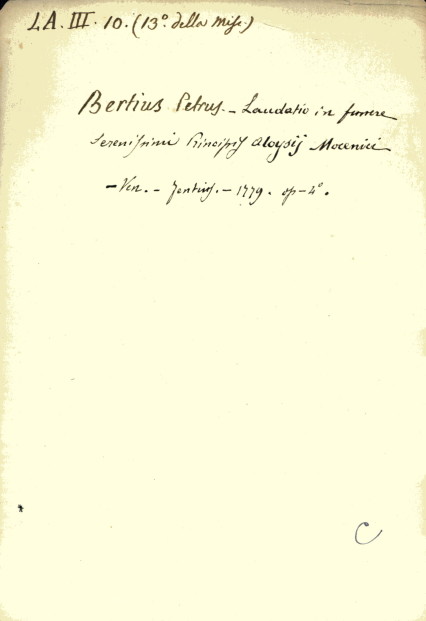 LA. III. 10. (13º. della Misc.)
Bertius Petrus. - Laudatio in funere
Serenissimi Principis Aloysij Mocenici
- Ven. - Zentius. - 1779. op - 4º.
C